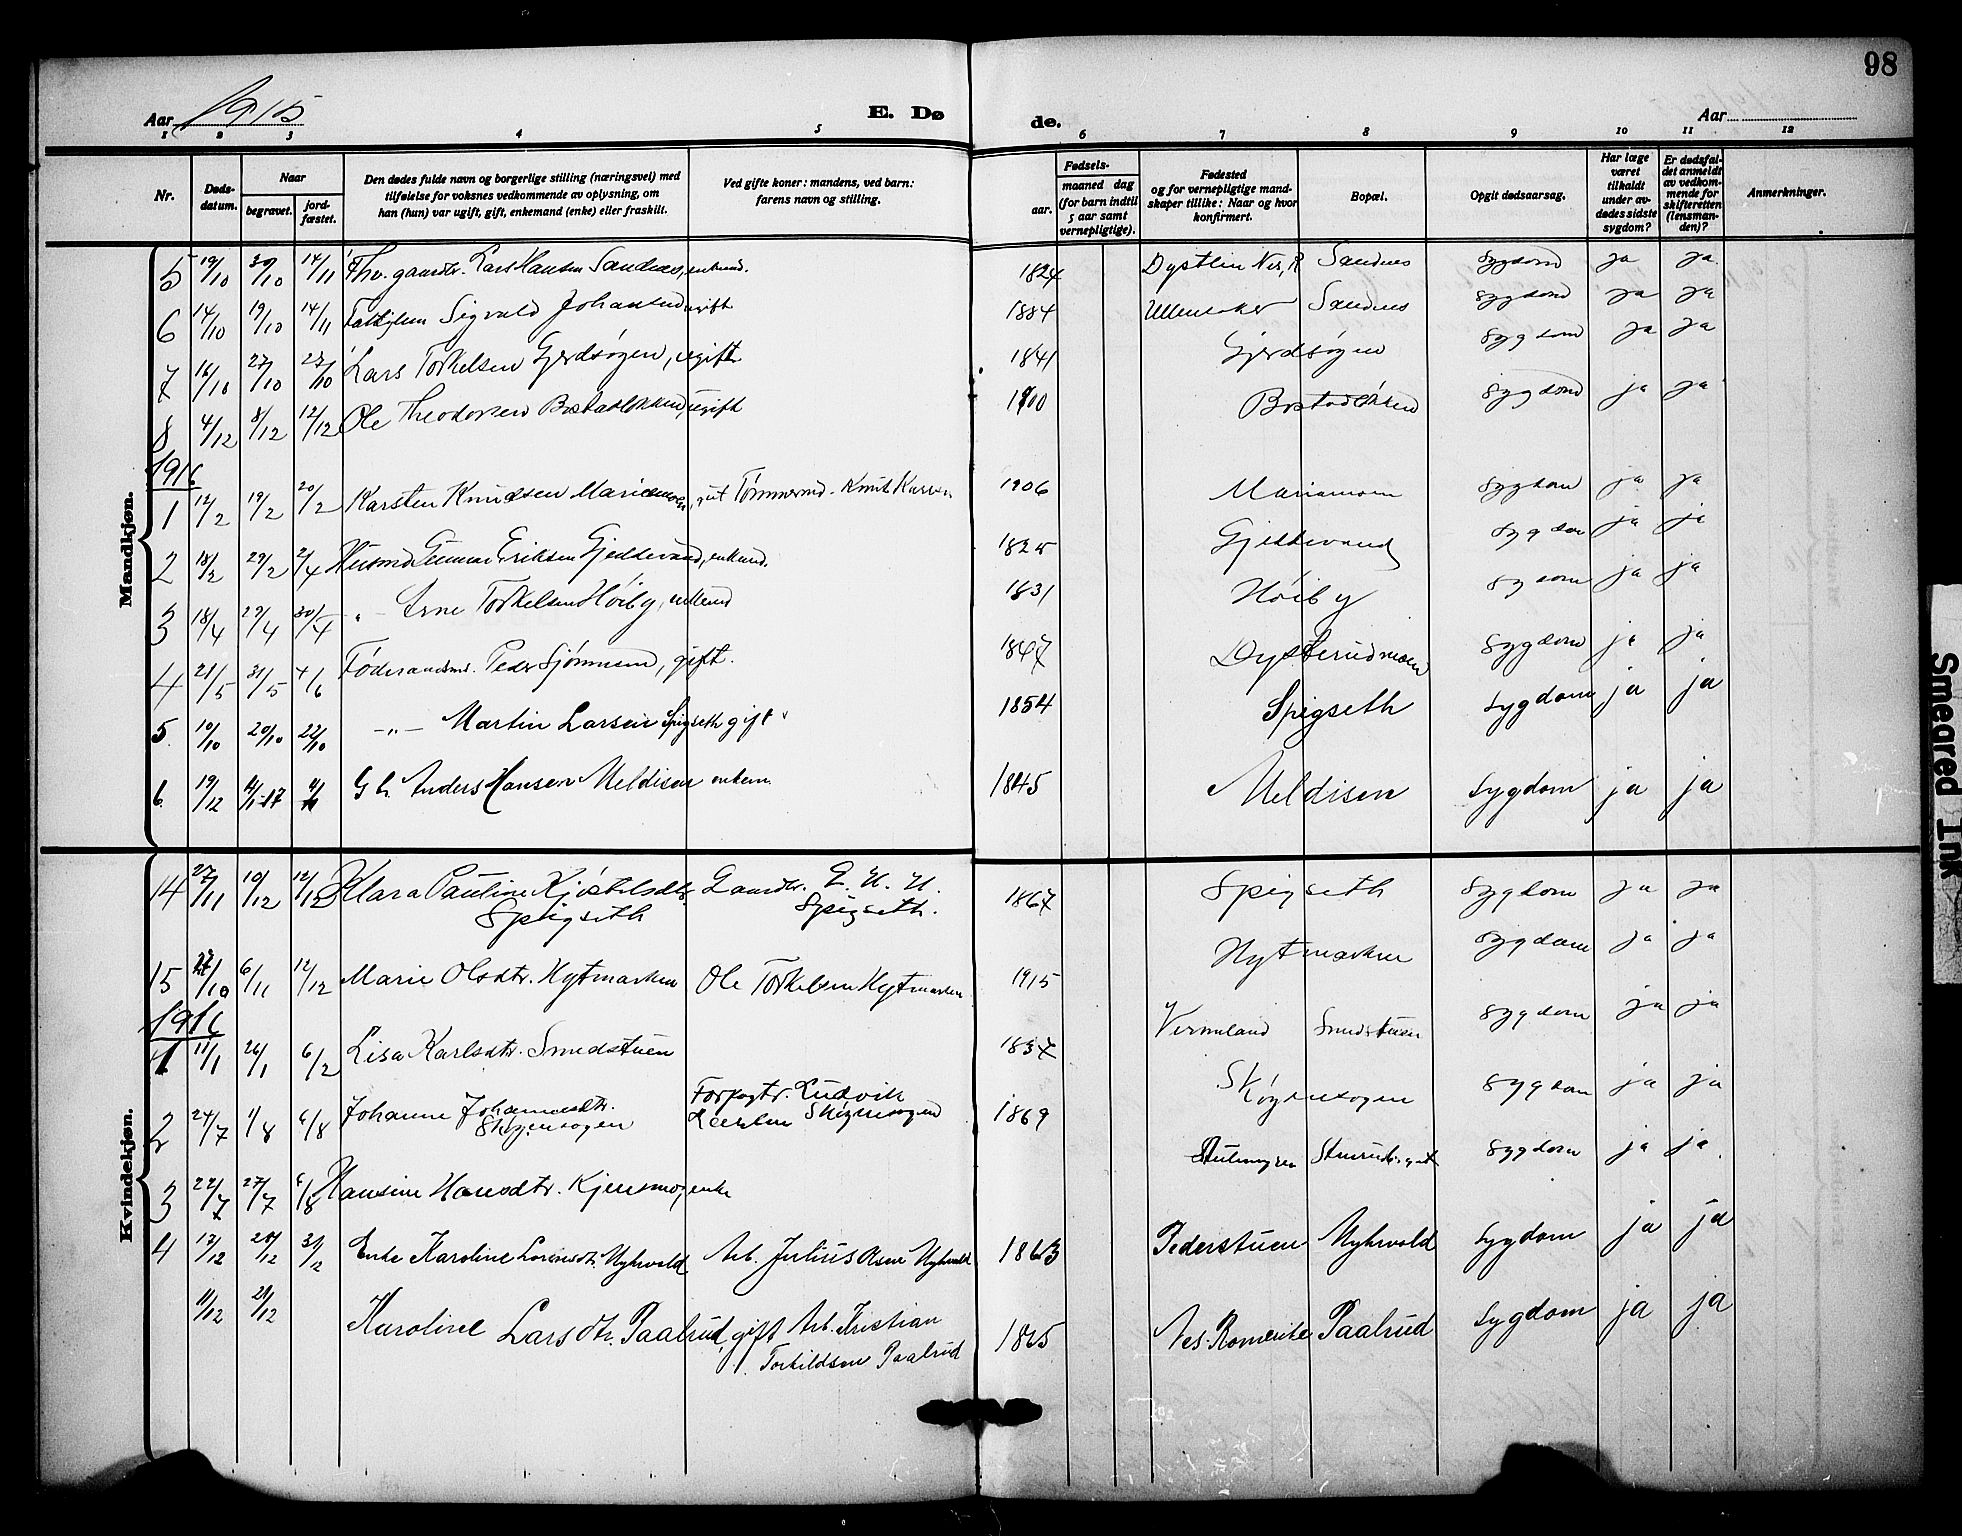 98
Aar 1915 E. Dø de. Aar
1 2 3 4 5 6 7 8 9 10 11 12
Nr. Døds-datum. Naar begravet. jord-fæstet. Den dødes fulde navn og borgerlige stilling (næringsvei) med tilføielse for voksnes vedkommende av oplysning, om han (hun) var ugift, gift, enkemand (enke) eller fraskilt. Ved gifte koner: mandens, ved barn: farens navn og stilling. Fødsels- aar. maaned dag (for barn indtil 5 aar samt vernepligtige). Fødested og for vernepligtige mand-skaper tillike: Naar og hvor konfirmert. Bopæl. Opgit dødsaarsag. Har læge været tilkaldt under av-dødes sidste sygdom? Er dødsfal-det anmeldt av vedkom-mende for skifteretten (lensman-den)? Anmerkninger.
Mandkjøn.
5 19/10 30/10 14/11 Fhv. gaardbr. Lars Hansen Sandnes, enkemd. 1824 Dystlin Nes, R Sandnes Sygdom ja ja
6 14/10 19/10 14/11 Sigvald Johansen ugift 1884 Ullensaker Sandnes Sygdom ja ja
7 16/10 27/10 27/10 Lars Torkelsen Gjerdsøgen, ugift 1841 Gjerdsøgen Sygdom ja ja
8 4/12 8/12 12/12 Ole Theodorsen Bostadløkken, ugift 1900 Bostadløkken Sygdom ja ja
1916
1 12/2 19/2 20/2 Karsten Knudsen Mariemoen, gut Tømmermd. Knut Karsen 1906 Mariamoen Sygdom ja ja
2 18/2 29/2 2/4 Husmd. Gunnar Eriksen Gjeddevand, enkemd. 1825 Gjeddevand Sygdom ja ja
3 18/4 29/4 30/4 -"- Arne Torkelsen Høiby, enkemd 1831 Høiby Sygdom ja ja
4 21/5 31/5 4/6 Føderaadsm. Peder Sjønnesen, gift. 1847 Dysterudmoen Sygdom ja ja
5. 10/10 20/10 22/10 -"- Martin Larsen Spigseth gift 1854 Spigseth Sygdom ja ja
6. 19/12 Gb. Anders Hansen Meldisen enkem. 1845 Meldisen Sygdom ja ja
Kvindekjøn.
14 27/11 10/12 12/12 Klara Pauline Kjøstelsdtr. Gaardbr.
Spigseth Spigseth. 1867 Spigseth Sygdom ja ja
15 6/11 12/12 Marie Olsdtr. Hytmarken Ole Torkelsen Hytmarken 1915 Hytmarken Sygdom ja ja
1916
1 11/1 26/1 6/2 Lisa Karlsdtr. Smedstuen 1837 Vermeland Smedstuen Sygdom ja ja
2 24/7 1/8 6/8 Johanne Johannesdtr. Forpagtr. Ludvik
Skøgensøgen Skøgensøgen 1869 Skøgensøgen Sygdom ja ja
3 22/7 27/7 6/8 Hansine Hansdtr. Kjensmo, enke Sygdom ja ja
4 17/12 28/12 31/12 Enke Karoline Lorensdtr. Myhrvold Arb. Julius Olsen Myhrvold 1863 Pederstuen Myhrvold Sygdom ja ja
11/12 21/12 Karoline Larsdtr. Paalrud, gift Arb. Kristian
Torkildsen Paalrud 1865 Nes. Romerike Paalrud Sygdom ja ja
Smeared Ink